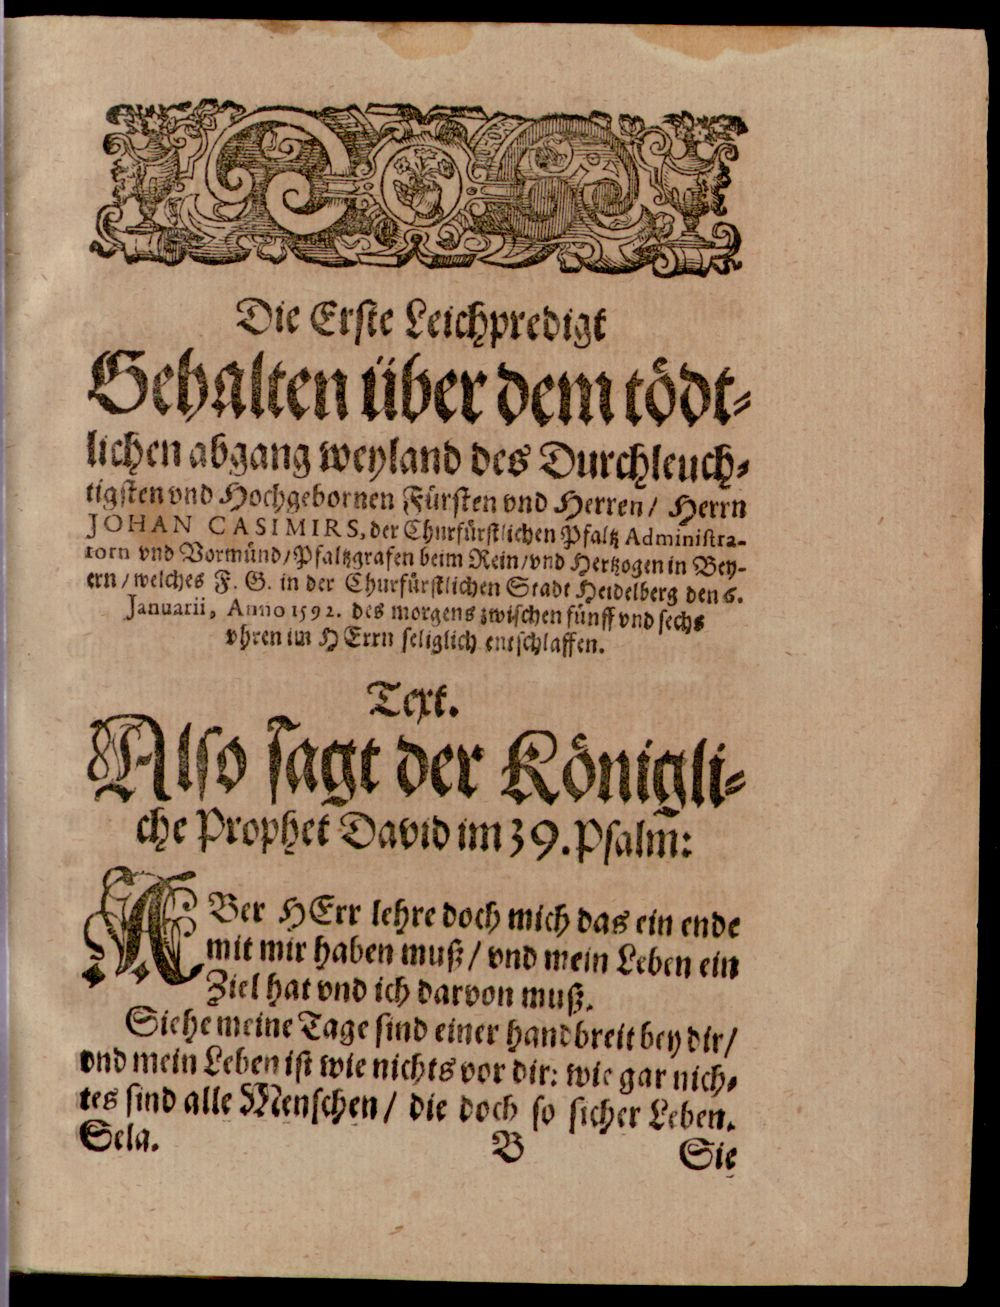 Die Erste Leichpredigt
Gehalten über dem tödt-
lichen abgang weyland des Durchleuch-
tigsten vnd Hochgebornen Fürsten vnd Herren/ Herrn
JOHAN CASIMIRS, der Churfürstlichen Pfaltz Administra-
torn vnd Vormünd/Pfaltzgrafen beim Rein/vnd Hertzogen in Bey-
ern/welches F. G. in der Churfürstlichen Stadt Heidelberg den 6.
Januarii, Anno 1592. des morgens zwischen fünff vnd sechs
vhren im HErrn seliglich entschlaffen.
Text.
Also sagt der Königli-
che Prophet David im 39. Psalm:
ABer HErr lehre doch mich das ein ende
mit mir haben muß/ vnd mein Leben ein
Ziel hat vnd ich darvon muß.
Siehe meine Tage sind einer handbreit bey dir/
vnd mein Leben ist wie nichts vor dir: wie gar nich-
tes sind alle Menschen/ die doch so sicher Leben.
Sela. B Sie